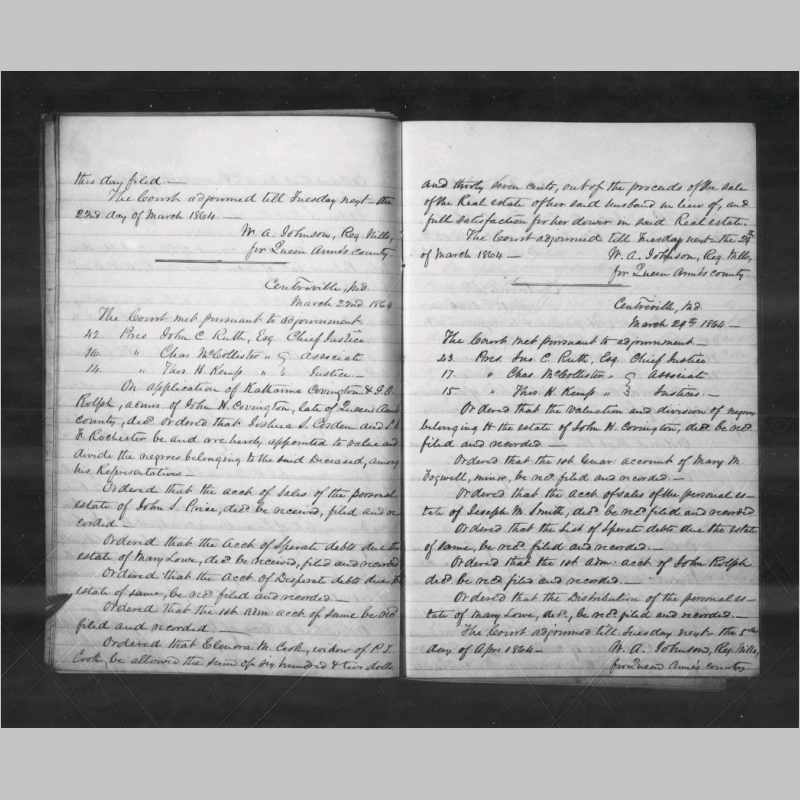 this day filed —
The Court adjourned till Tuesday next the
22nd day of March 1864 —
W. A. Johnson, Reg. Wills,
for Queen Anne's county
Centreville, Md.
March 22nd 1864
The Court met pursuant to adjournment
42 Pres John C. Ruth, Esq Chief Justice
16 " Chas McCollister " } Associate
14 " Thos H. Kemp " } Justice —
On application of Katharine Covington &
Rolph, admrs of John H. Covington, late of Queen Anns
county, decd ordered that Joshua S. Corden and
Rochester be and are hereby appointed to value and
divide the negroes belonging to the said Deceased, among
his Representatives —
Ordered that the acct of sales of the personal
estate of John S. Price, decd be received, filed and re
corded —
Ordered that the acct of Sperate debts due the
estate of Mary Lowe, decd be received, filed and recorded
Ordered that the acct of Desperat debts due the
estate of same, be recd filed and recorded —
Ordered that the 1st adm acct of same be recd
filed and recorded
Ordered that Elenora M. Cook, widow of P. T.
Cook, be allowed the sum of six hundred & two dolls
and thirty seven cents, out of the proceeds of the sale
of the Real estate of her said husband in lieu of, and
full satisfaction for her dower in said Real estate.
The Court adjourned till Tuesday next the 29th
of March 1864 — W. A. Johnson, Reg. Wills,
for Queen Anne's county
Centreville, Md.
March 29th 1864 —
The Court met pursuant to adjournment —
43 Pres. Jno C. Ruth, Esq Chief Justice
17 " Chas McCollister " } Associate
15 " Thos H. Kemp " } Justices —
Ordered that the valuation and division of negroes
belonging to the estate of John H. Covington, decd be recd
filed and recorded —
Ordered that the 1st Guar account of Mary M.
Fogwell, minor, be recd filed and recorded —
Ordered that the acct of sales of the personal es-
tate of Joseph M. Smith, decd be recd filed and recorded
Ordered that the List of Sperate debts due the estate
of same, be recd filed and recorded. —
Ordered that the 1st adm: acct of John Rolph
decd be recd filed and recorded. —
Ordered that the Distribution of the personal es-
tate of Mary Lowe, decd, be recd filed and recorded. —
The Court adjourned till Tuesday next the 5th
day of Apr 1864 — W. A. Johnson, Reg. Wills,
for Queen Anne's county